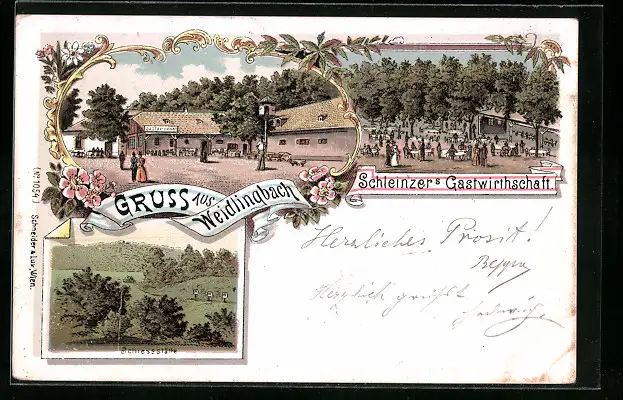 GASTHAUS
GRUSS AUS
Weidlingbach
Schleinzer's Gastwirthschaft.
Schiessstätte
(No 1054) Schneider & Lux, Wien.
Herzliches Prosit!
Herzlich grüsst
Hedwig.